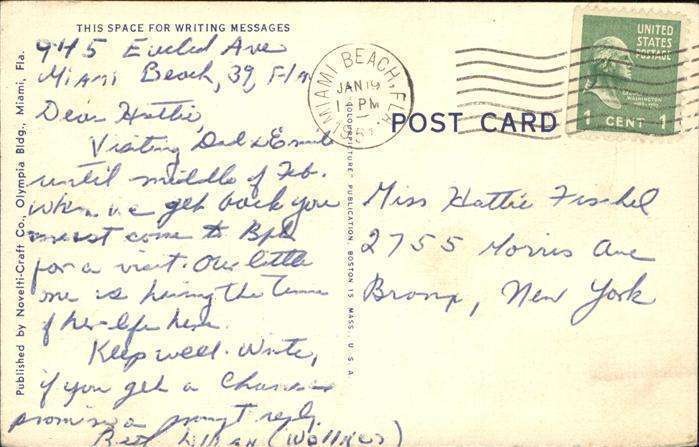 THIS SPACE FOR WRITING MESSAGES
945 Euclid Ave
Miami Beach, 39, Fla
Dear Hattie,
Visiting Dad &
until middle of Feb.
When we get back you
must come to
for a visit. Our little
one is having the time
of her life here.
Keep well. Write,
if you get a Chance
promise a prompt reply.
(Wallner)
Published by Novelti-Craft Co., Olympia Bldg., Miami, Fla.
PUBLICATION, BOSTON 15, MASS., U.S.A.
MIAMI BEACH, FLA.
JAN 19
PM
POST CARD
UNITED
STATES
POSTAGE
WASHINGTON
1 CENT 1
Miss Hattie Fischel
2755 Morris Ave
Bronx, New York